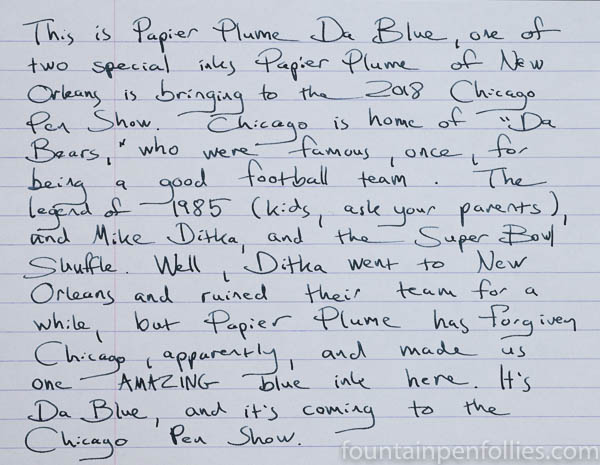 This is Papier Plume Da Blue, one of
two special inks Papier Plume of New
Orleans is bringing to the 2018 Chicago
Pen Show. Chicago is home of "Da
Bears," who were famous, once, for
being a good football team. The
legend of 1985 (kids, ask your parents),
and Mike Ditka, and the Super Bowl
Shuffle. Well, Ditka went to New
Orleans and ruined their team for a
while, but Papier Plume has forgiven
Chicago, apparently, and made us
one AMAZING blue ink here. It's
Da Blue, and it's coming to the
Chicago Pen Show.
fountainpenfollies.com